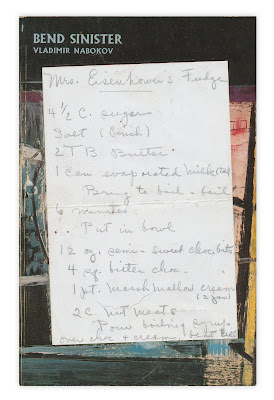 BEND SINISTER
VLADIMIR NABOKOV
Mrs. Eisenhower's Fudge
4 1/2 C. sugar
Salt (Pinch)
2 TB Butter
1 Can evaporated milk (tall)
Bring to boil - boil
6 minutes.
Put in bowl
12 oz. semi-sweet choc. bits
4 sq. bitter choc.
1 pt. Marshmallow cream
(2 jars)
2 C. Nut meats
Pour boiling syrup
over choc + cream, beat